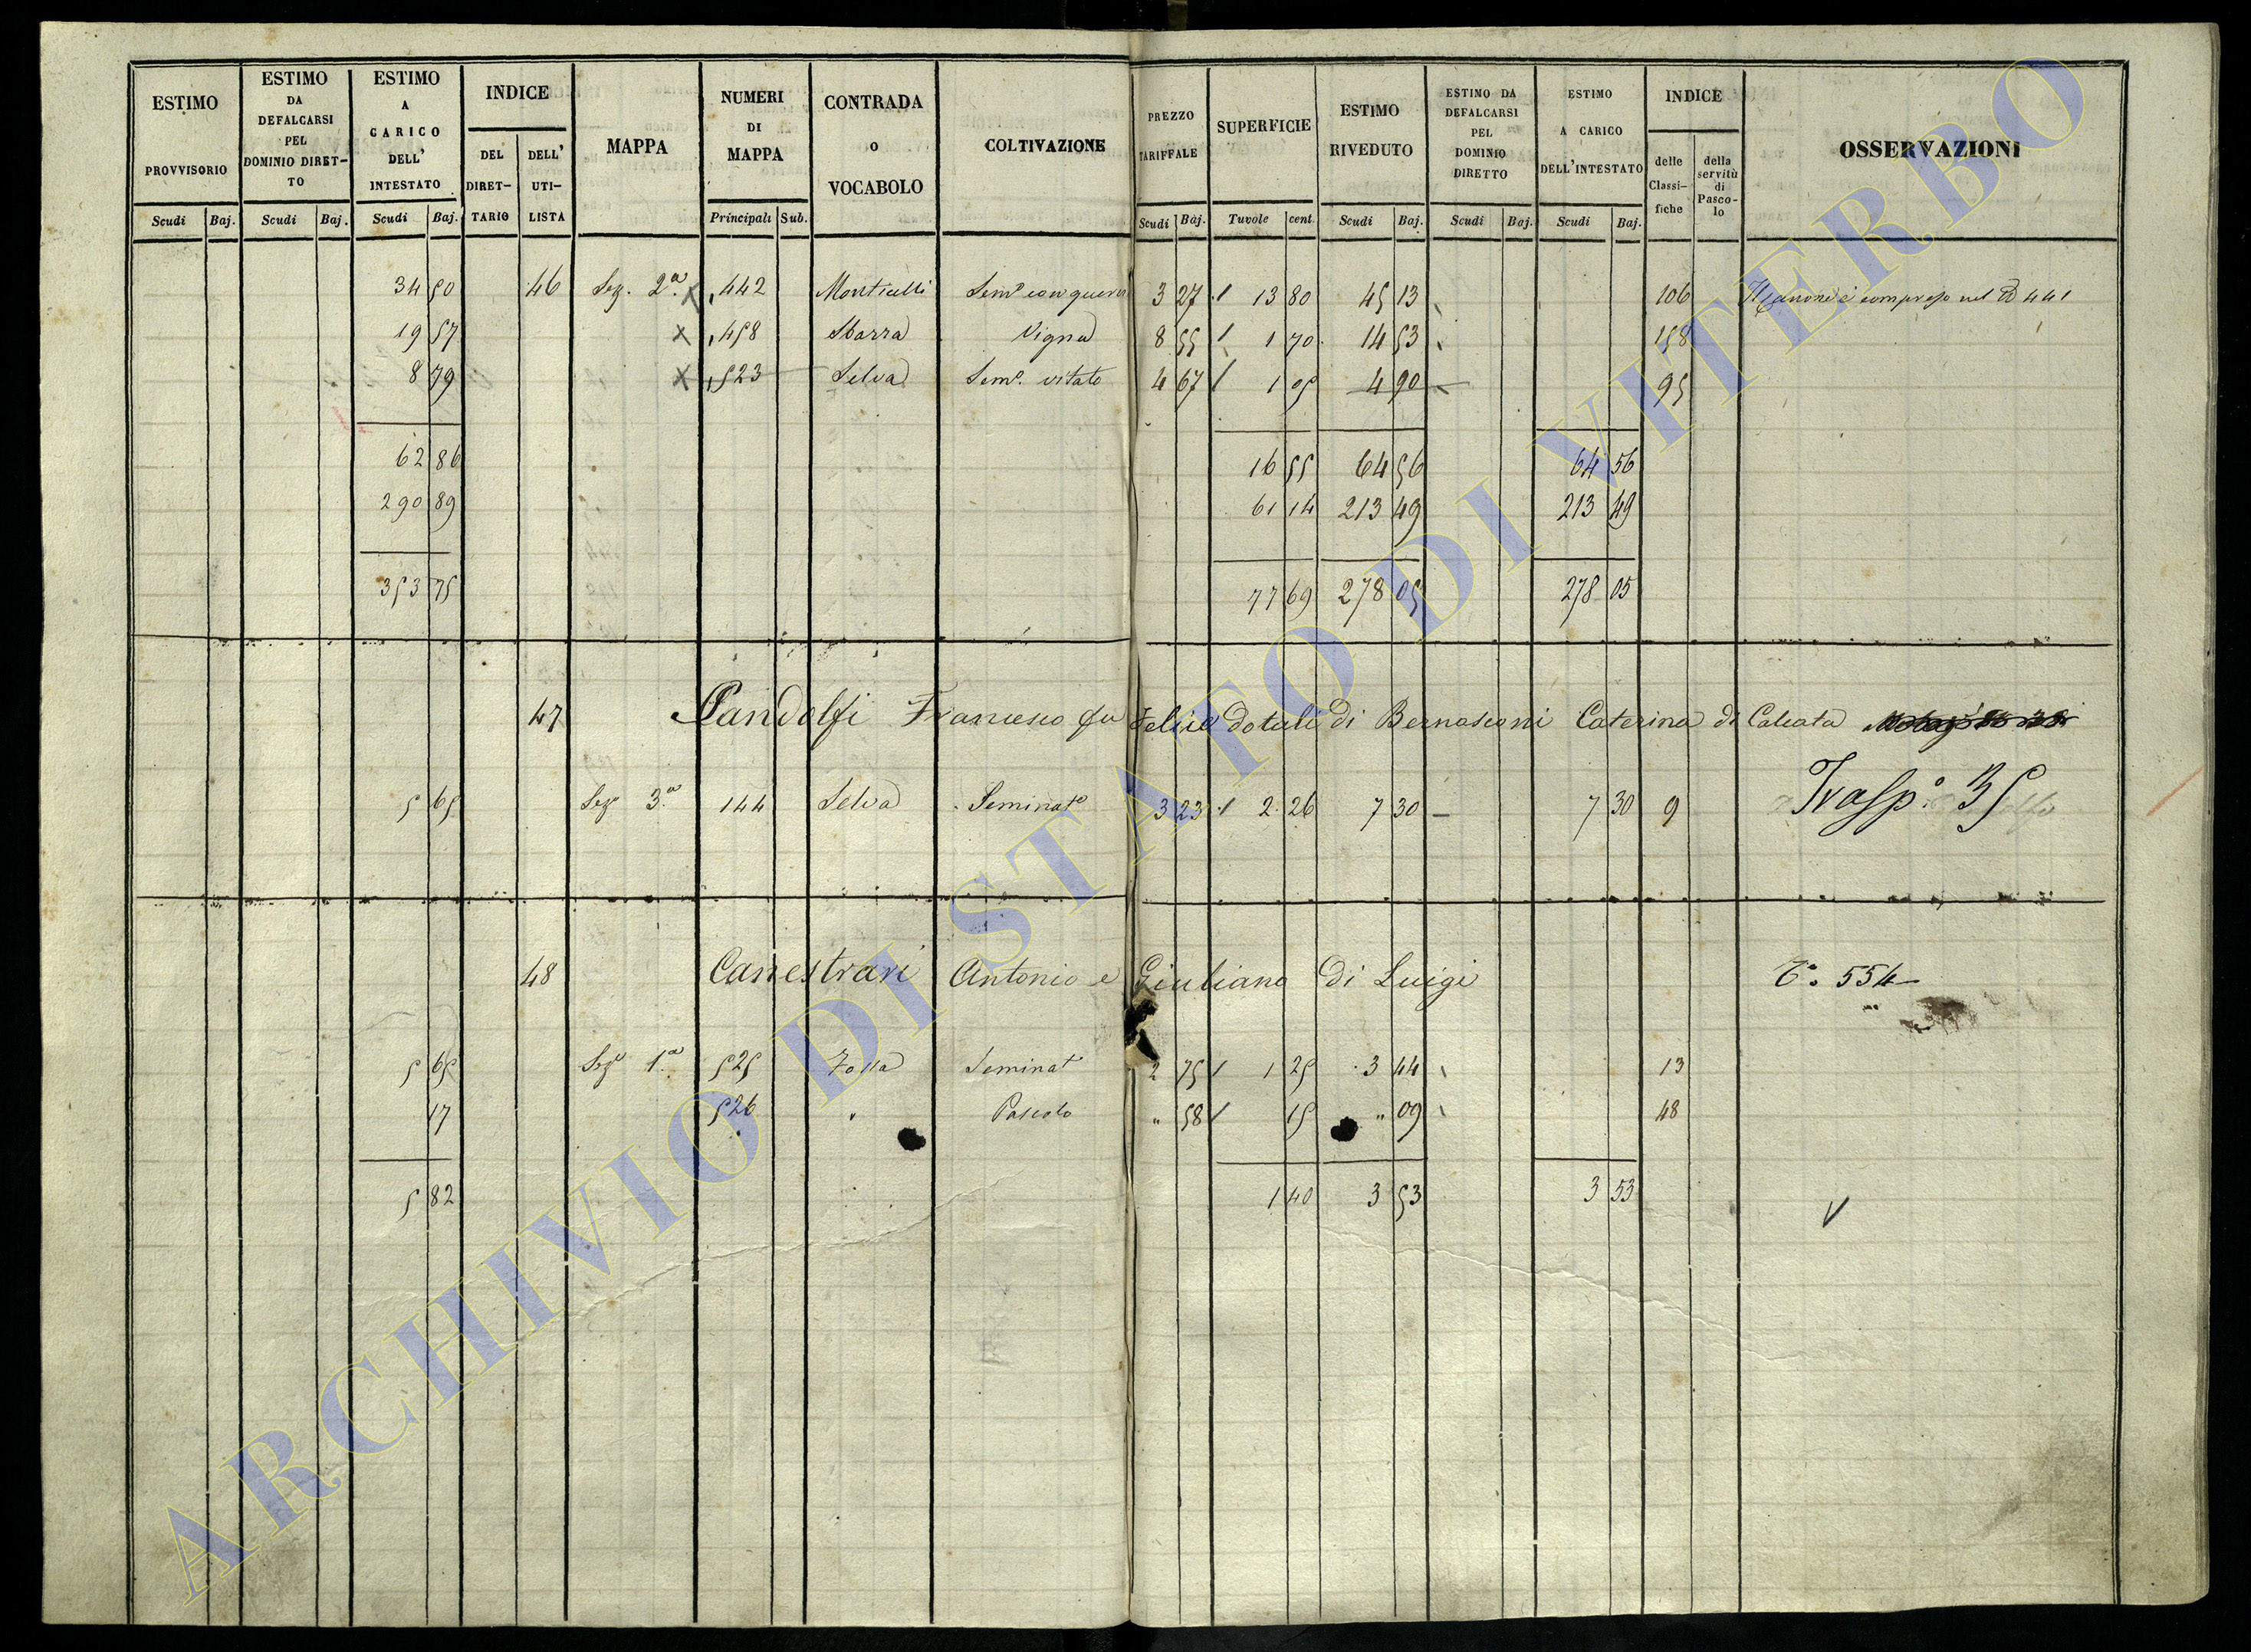 ESTIMO PROVVISORIO
ESTIMO DA DEFALCARSI PEL DOMINIO DIRET-TO
ESTIMO A CARICO DELL' INTESTATO
INDICE
DEL DIRET-TARIO
DELL' UTI-LISTA
MAPPA
NUMERI DI MAPPA
CONTRADA O VOCABOLO
COLTIVAZIONE
PREZZO TARIFFALE
SUPERFICIE
ESTIMO RIVEDUTO
ESTIMO DA DEFALCARSI PEL DOMINIO DIRETTO
ESTIMO A CARICO DELL'INTESTATO
INDICE
delle Classi-fiche
della servitù di Pasco-lo
OSSERVAZIONI
Scudi Baj. Scudi Baj. Scudi Baj. Principali Sub. Scudi Baj. Tavole cent. Scudi Baj. Scudi Baj. Scudi Baj.
34 50 46 Sez. 2ª 442 Monticelli Semo con querci 3 27 13 80 45 13 106 Il canone è compreso nel N 441
19 57 458 Sbarra Vigna 8 55 1 70 14 53 158
8 79 523 Selva Semo. vitato 4 67 1 05 4 90 95
62 86 16 55 64 56 64 56
290 89 61 14 213 49 213 49
353 75 77 69 278 05 278 05
47 Pandolfi Francesco fu Felice dotali di Bernasconi Caterina di Calcata
5 65 Sez 3ª 144 Selva Seminato 3 23 2 26 7 30 7 30 9 Trasp.o 35
48 Canestrari Antonio e Giuliano di Luigi To. 554
5 65 Sez 1ª 525 Fossa Seminato 2 75 1 25 3 44 13
17 526 " Pascolo " 58 15 " 09 48
5 82 1 40 3 53 3 53
ARCHIVIO DI STATO DI VITERBO